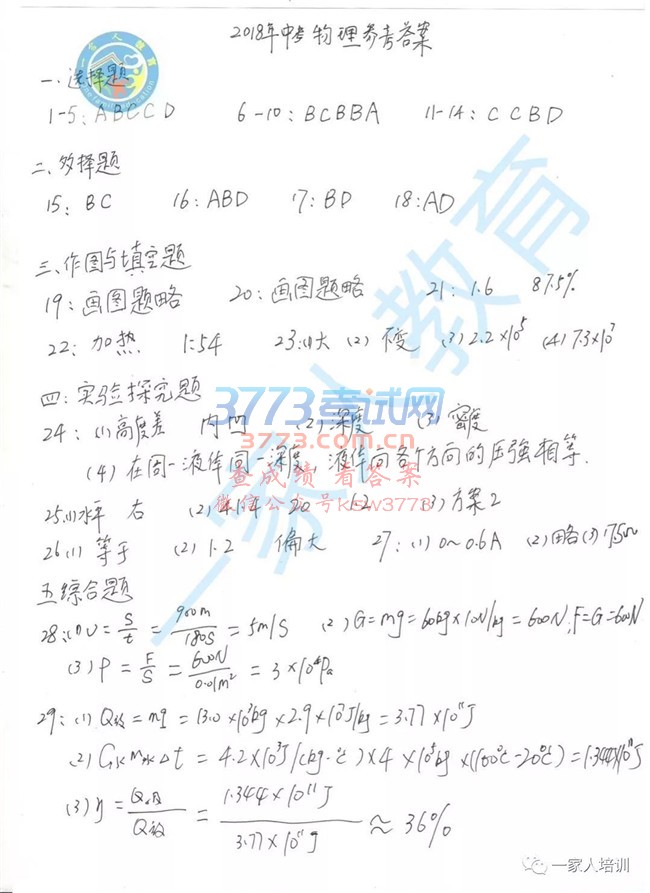 2018年中考物理参考答案
一、选择题
1-5: ABCCD 6-10: BCBBA 11-14: CCBD
二、多择题
15: BC 16: ABD 17: BD 18: AD
三、作图与填空题
19: 画图题略 20: 画图题略 21: 1.6 87.5%
22: 加热 1:54 23: (1)大 (2) 不变 (3) 2.2×10⁵ (4) 7.3×10⁷
四: 实验探究题
3773考试网
24: (1)高度差 内凹 (2)深度 (3)密度
3773.com.cn
(4) 在同一液体同一深度, 液体向各个方向的压强相等.
查成绩 看答案
微信公众号ksw3773
25.(1)水平 右 (2) 20 (3)方案2
26(1) 等于 (2) 1.2 偏大 27: (1) 0~0.6A (2)略(3)
五综合题
28:(1)V = S/t = 900m/180S = 5m/S (2) G=mg=60kg×10N/kg=600N, F=G=600N
(3) P = F/S = 600N/0.01m² = 3×10⁴Pa
29: (1) Q放 = mq = 13.0×10³kg×2.9×10⁷J/kg=3.77×10¹¹J
(2) C水M水Δt = 4.2×10³J/(kg·℃)×4 ×(100℃-20℃)=1.344×10¹¹J
(3) η = Q吸/Q放 = 1.344×10¹¹J/3.77×10¹¹J ≈ 36%
一家人教育
一家人培训